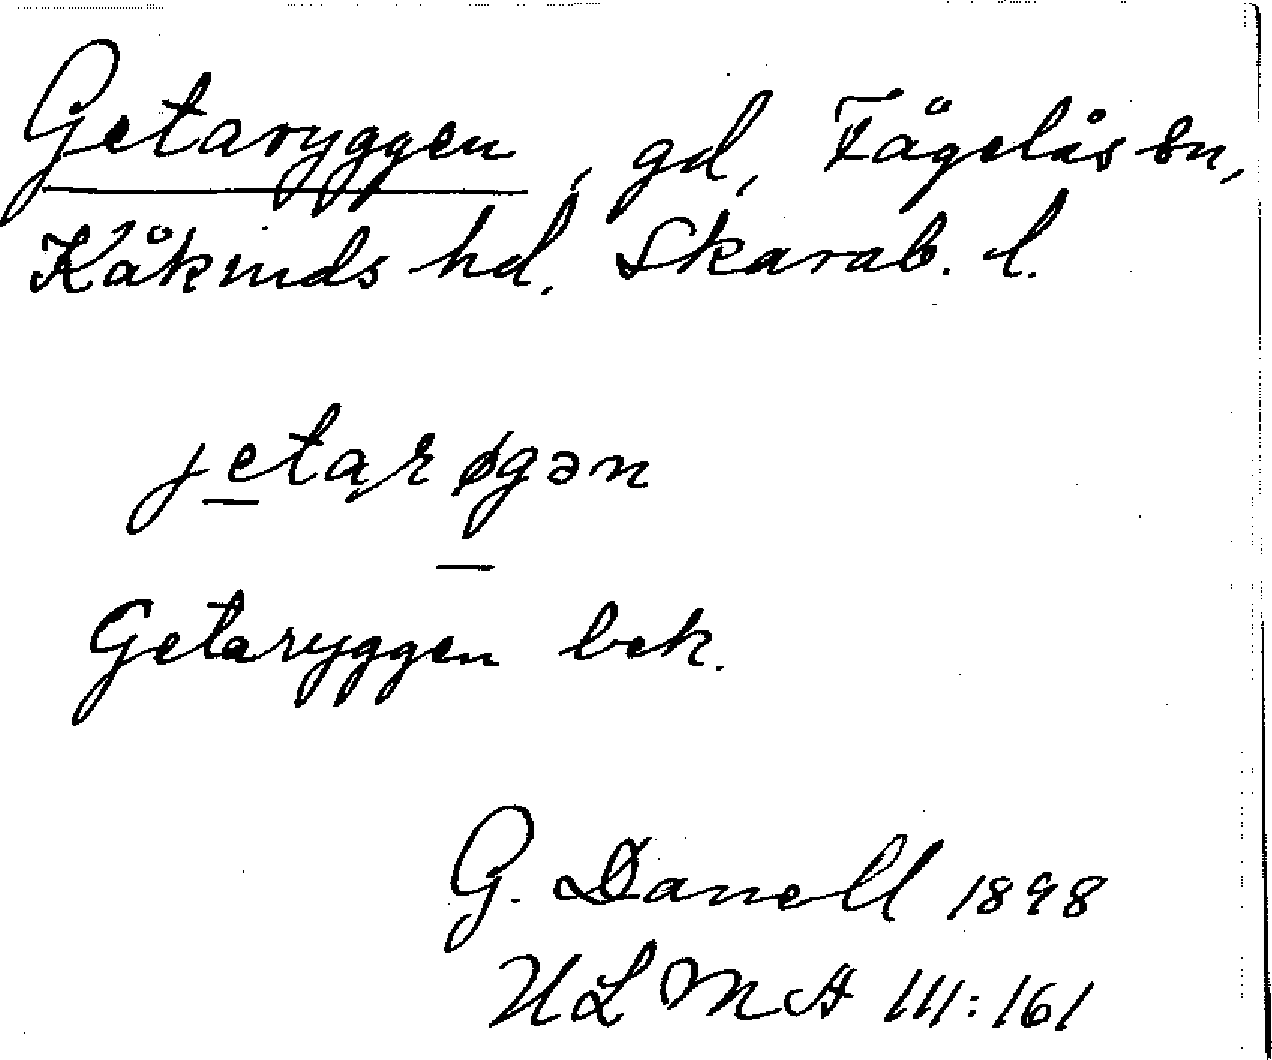 Getaryggen, gd, Fågelås sn,
Kåkinds hd. Skarab. l.
jetarøgən
Getaryggen bek.
G. Danell 1898
ULMA 111:161